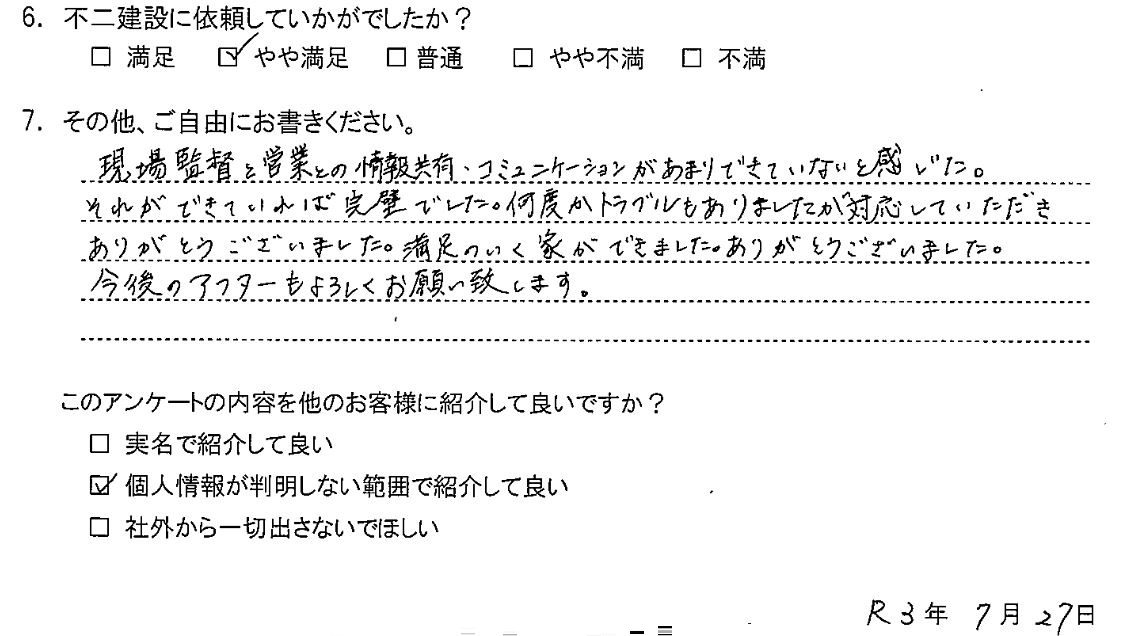 6. 不二建設に依頼していかがでしたか？
□ 満足 ☑ やや満足 □ 普通 □ やや不満 □ 不満
7. その他、ご自由にお書きください。
現場監督と営業との情報共有・コミュニケーションがあまりできていないと感じた。
それができていれば完璧でした。何度かトラブルもありましたが対応していただき
ありがとうございました。満足のいく家ができました。ありがとうございました。
今後のアフターもよろしくお願い致します。
このアンケートの内容を他のお客様に紹介して良いですか？
□ 実名で紹介して良い
☑ 個人情報が判明しない範囲で紹介して良い
□ 社外から一切出さないでほしい
R3年 7月 27日